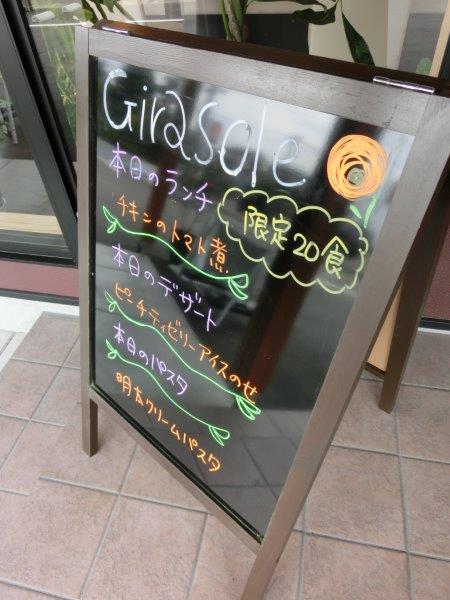 Girasole
本日のランチ
限定20食
チキンのトマト煮
本日のデザート
ピーチティゼリーアイスのせ
本日のパスタ
明太クリームパスタ